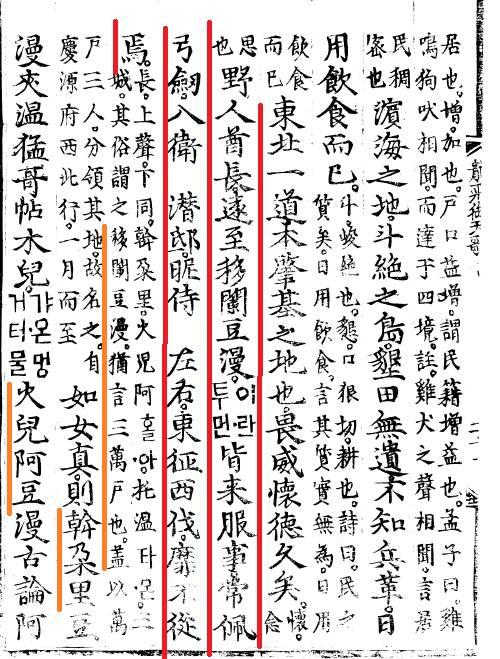 居也。增。加也。戶口益增。謂民籍增益也。孟子曰。雞
鳴狗吠相聞。而達于四境。註。雞犬之聲相聞。言居
民稠
密也
濱海之地。斗絶之島。墾田無遺。不知兵革。日
用飮食而已。
斗峻絶也。墾。口狠切。耕也。詩曰。民之
質矣。日用飮食。言其質實無爲。日用
飮食
而已
東北一道。本肇基之地也。畏威懷德久矣。
懷。
念
思
也
野人酋長。遠至移闌豆漫。
이란
투먼
皆來服事。常佩
弓劒。入衛 潜邸。昵侍 左右。東征西伐。靡不從
焉。
長。上聲。下同。斡朶里。火兒阿홀아。托溫타온。三
城。其俗謂之移闌豆漫。猶言三萬戶也。盖以萬
戶三人。分領其地。故名之。自
慶源府西北行。一月而至
如女眞。則斡朶里豆
漫夾溫猛哥帖木兒。
갸온멍
거터물
火兒阿豆漫古論阿